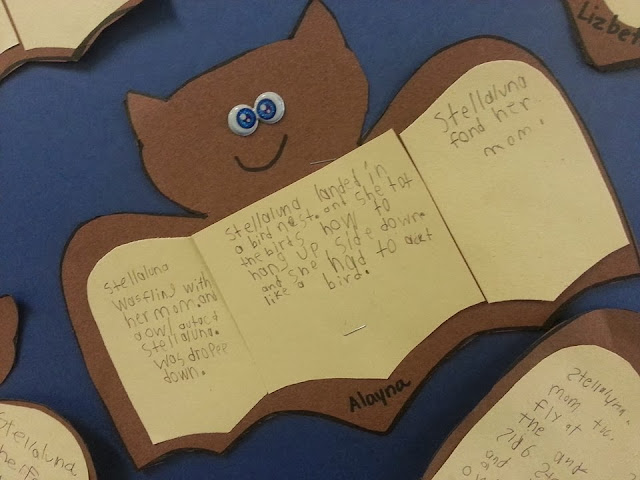 Lizbet
Stellaluna
was fling with
her mom. and
a owl atacd
Stellaluna.
was dropee
down.
Stellaluna landed in
a bird nest. and she tot
the birds how to
hang up side down.
and she had to act
like a bird.
Stellaluna
fond her
mom.
Alayna
Stellaluna
Stellaluna.
mom
fly at
the
and
and